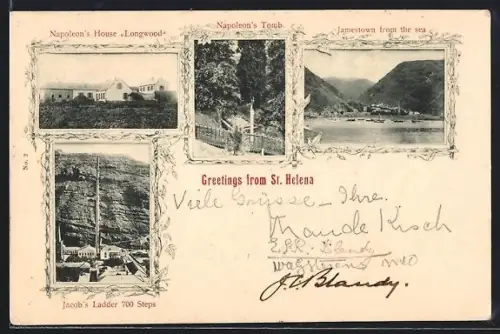 Napoleon's House «Longwood»
Napoleon's Tomb
Jamestown from the sea
No. 2
Greetings from St. Helena
Viele Grüsse – Ihre
Maude Kisch
Blandy
J.C. Blandy.
Jacob's Ladder 700 Steps